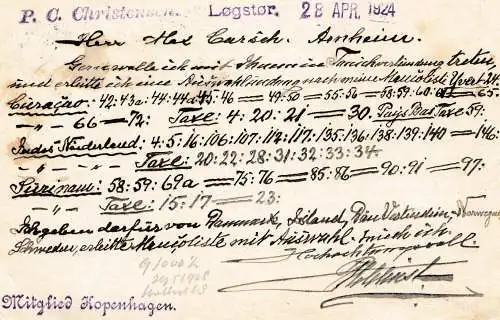 P. C. Christensen. Løgstør. 28 APR. 1924
Herr Alex Carsch. Arnheim.
Gerne wolle ich mit Ihnen in Tauschverbindung treten,
und erbitte ich eine Auswahlsendung nach meine Mancoliste Yvert 24.
Curaçao: 42-43a: 44-44a-45-46 = 49-50 = 55-56 = 58-59-60 = 65.
-"- 66 = 72: Taxe: 4: 20: 21 = 30. Pays Bas Taxe 59:
Indes Néderland: 4: 5: 16: 106: 107: 112: 117: 135: 136: 138: 139: 140 = 146:
-"- -"- Taxe: 20: 22: 28: 31: 32: 33: 34
Surinam: 58: 59: 69a = 75: 76 = 85: 86 = 90: 91 = 97:
-"- -"- Taxe: 15: 17 = 23:
Ich geben dafür von Danmark, Island, Dän Vestindien, Norwegen
Schweden, erbitte Mancoliste mit Auswahl.
Hochachtungsvoll
Mitglied Kopenhagen.